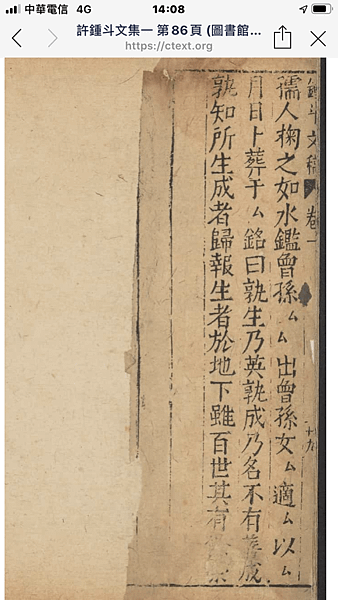 中華電信 4G
14:08
許鍾斗文集一 第86頁 (圖書館...
https://ctext.org
鍾斗文稿 卷一 十九
孺人掬之如水鑑曾孫ㄙㄙ出曾孫女ㄙ適ㄙ以ㄙ
月日卜葬于ㄙ銘曰孰生乃英孰成乃名不有 成
孰知所生成者歸報生者於地下雖百世其有